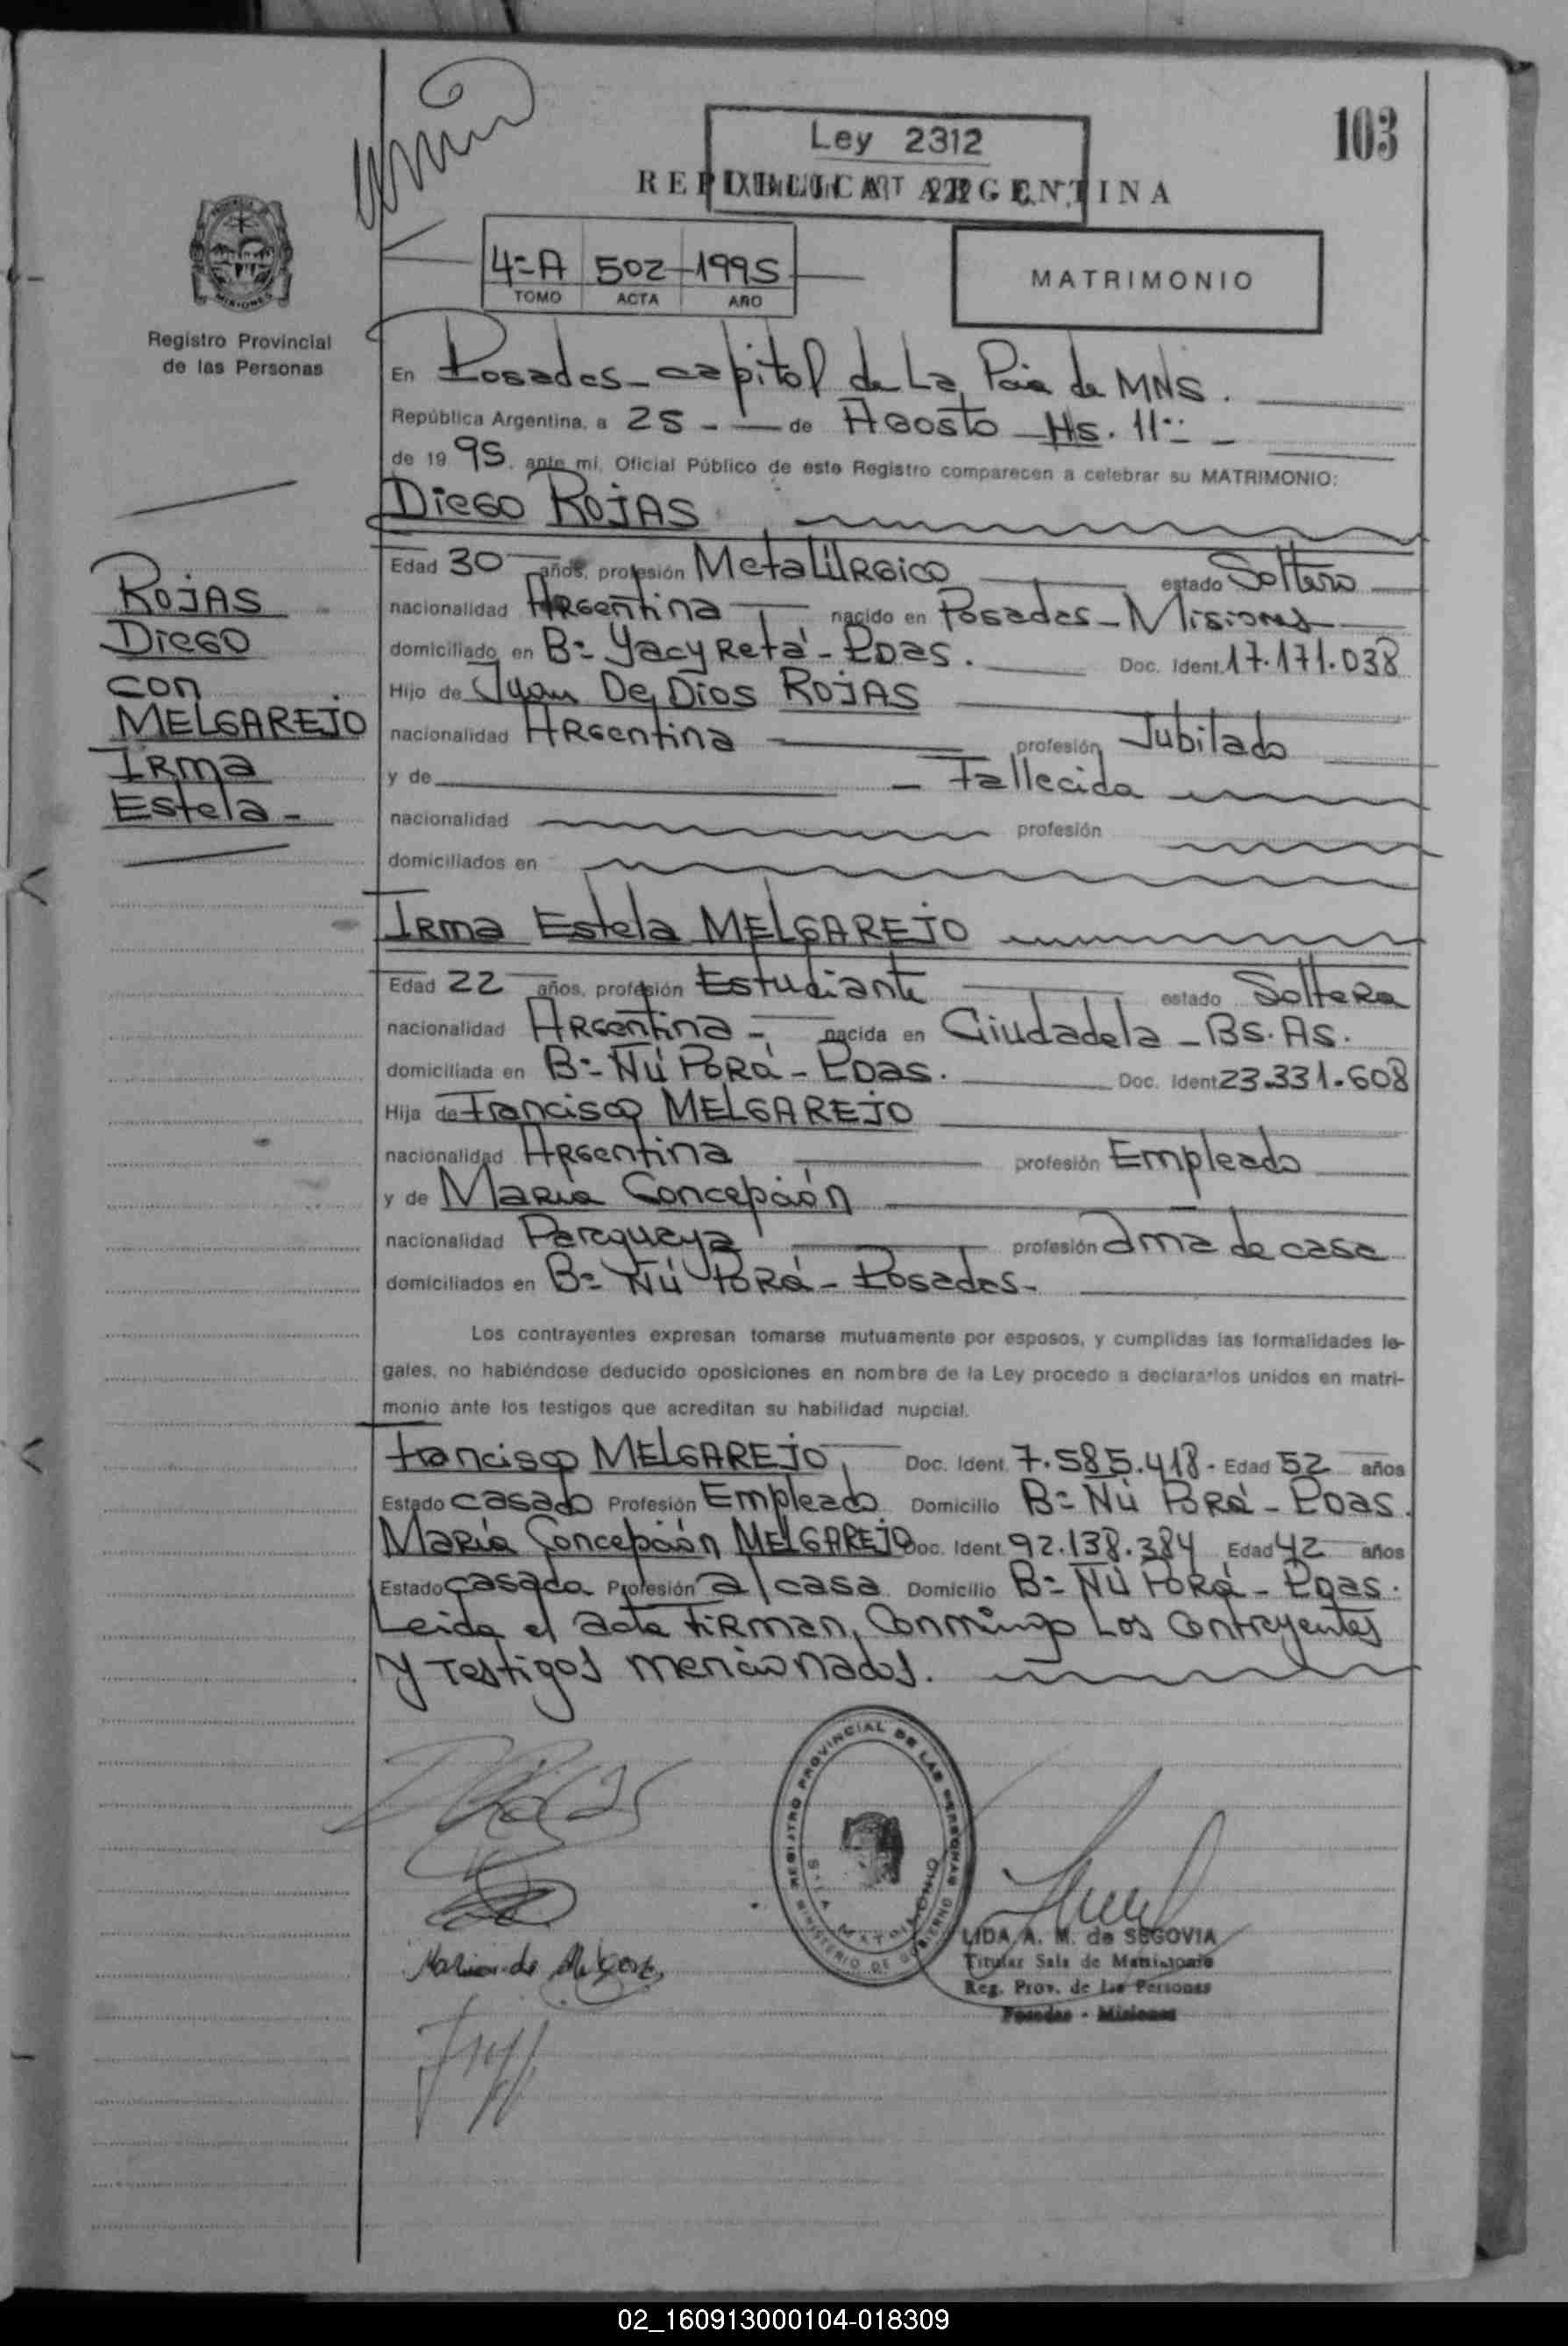 103
Ley 2312
REPUBLICA ARGENTINA
4=A 502 1995
TOMO ACTA AÑO
MATRIMONIO
Registro Provincial
de las Personas
En Posadas - capitol de La Pcia de MNS.
República Argentina, a 25 - de Agosto Hs. 11:
de 19 95, ante mí, Oficial Público de este Registro comparecen a celebrar su MATRIMONIO:
Diego ROJAS
ROJAS
Diego
con
MELGAREJO
Irma
Estela -
Edad 30 años, profesión Metalúrgico estado Soltero
nacionalidad Argentina nacido en Posadas - Misiones
domiciliado en B= Yacyretá - Pdas. Doc. Ident. 17.171.038
Hijo de Juan De Dios ROJAS
nacionalidad Argentina profesión Jubilado
y de - Fallecida
nacionalidad profesión
domiciliados en
Irma Estela MELGAREJO
Edad 22 años, profesión Estudiante estado Soltera
nacionalidad Argentina - nacida en Ciudadela - Bs. As.
domiciliada en B= Ñú Porá - Pdas. Doc. Ident. 23.331.608
Hija de Francisco MELGAREJO
nacionalidad Argentina profesión Empleado
y de María Concepción
nacionalidad Paraguaya profesión ama de casa
domiciliados en B= Ñú Porá - Posadas -
Los contrayentes expresan tomarse mutuamente por esposos, y cumplidas las formalidades le-
gales, no habiéndose deducido oposiciones en nombre de la Ley procedo a declararlos unidos en matri-
monio ante los testigos que acreditan su habilidad nupcial.
Francisco MELGAREJO, Doc. Ident. 7.585.418 - Edad 52 años
Estado casado Profesión Empleado Domicilio B= Ñú Porá - Pdas.
María Concepción MELGAREJO Doc. Ident. 92.138.384 Edad 42 años
Estado casada Profesión a/casa Domicilio B= Ñú Porá - Pdas.
Leida el acta firman, conmigo Los contrayentes
y Testigos mencionados.
REGISTRO PROVINCIAL DE LAS PERSONAS
MINISTERIO DE GOBIERNO
MATRIMONIO
LIDA A. M. de SEGOVIA
Titular Sala de Matrimonio
Reg. Prov. de las Personas
Posadas - Misiones
02_160913000104-018309